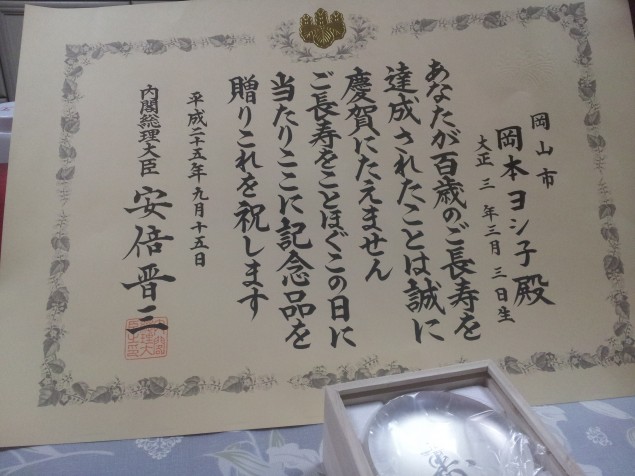 岡山市
岡本ヨシ子殿
大正三年三月三日生
あなたが百歳のご長寿を
達成されたことは誠に
慶賀にたえません
ご長寿をことほぐこの日に
当たりここに記念品を
贈りこれを祝します
平成二十五年九月十五日
内閣総理大臣 安倍晋三